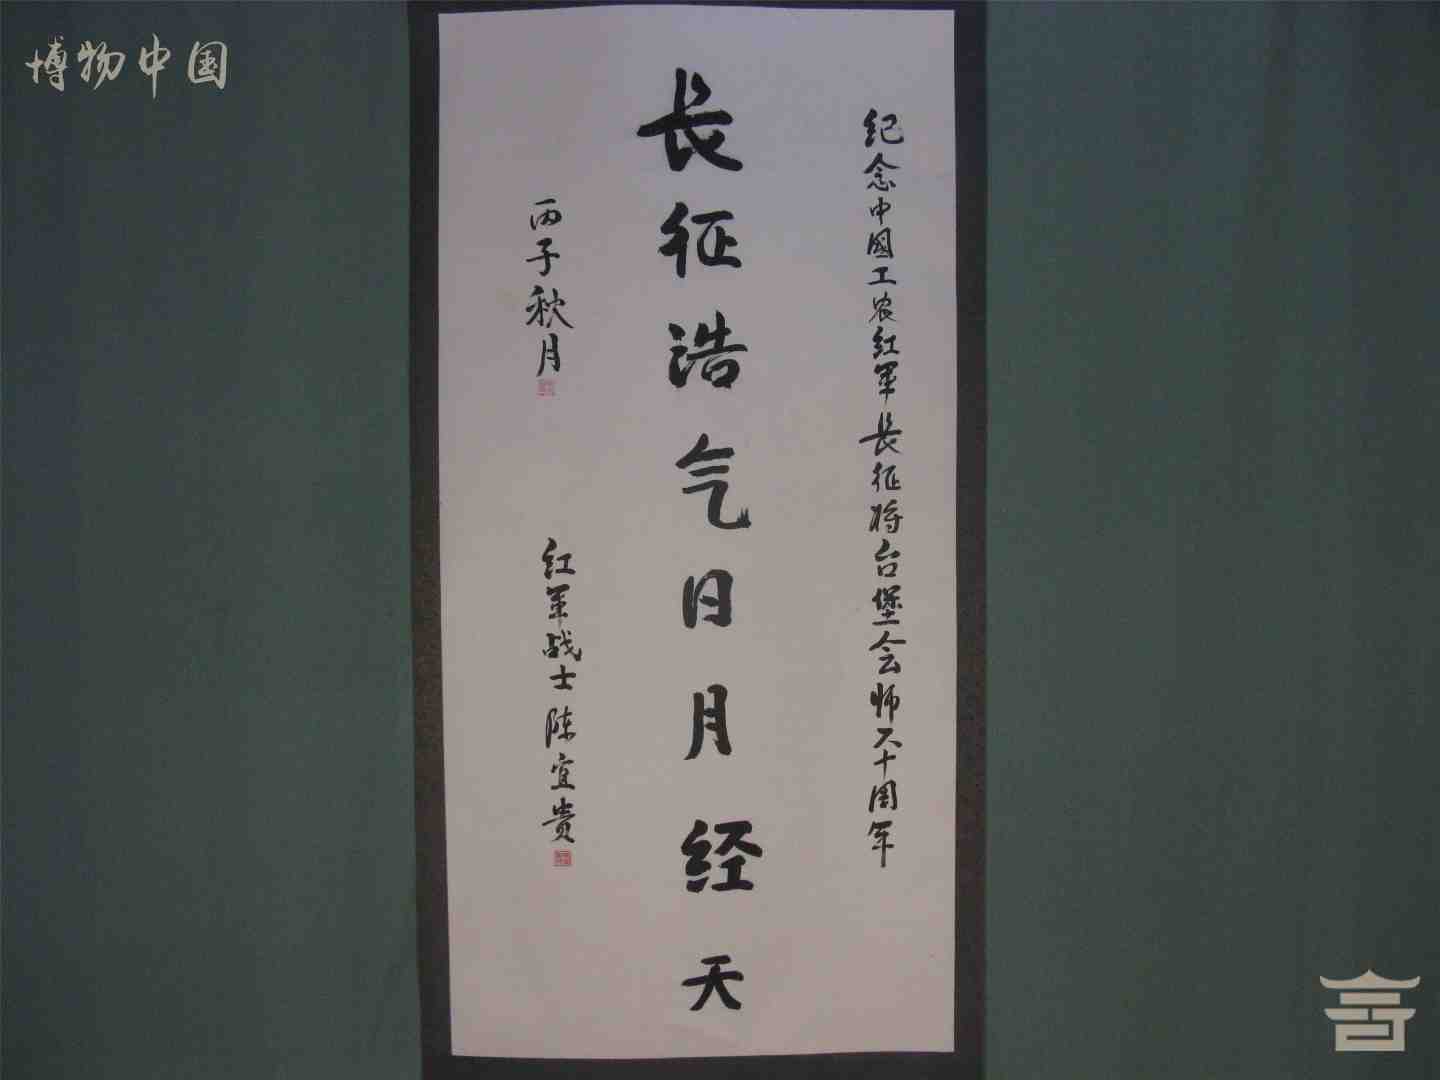 博物中国
纪念中國工农红军長征将台堡会师六十周年
長征浩气日月经天
丙子秋月
红军战士陈宜贵